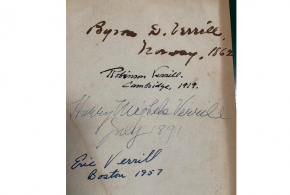 Byron D. Verrill,
Norway, 1862
Robinson Verrill.
Cambridge, 1919.
Harry Mighels Verrill
July 1891
Eric Verrill
Boston 1957